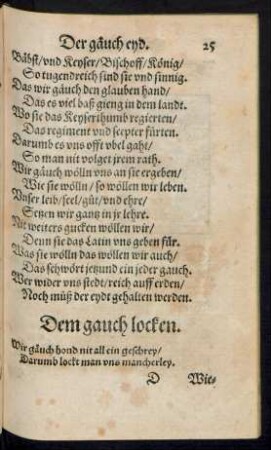 Der gäuch eyd. 25
Bäbst/vnd Keyser/Bischoff/König/
So tugendreich sind sie vnd sinnig.
Das wir gäuch den glauben hand/
Das es viel baß gieng in dem landt.
Wo sie das Keyserthumb regierten/
Das regiment vnd scepter fürten.
Darumb es vns offt vbel gaht/
So man nit volget jrem rath.
Wir gäuch wölln vns an sie ergeben/
Wie sie wölln/so wöllen wir leben.
Vnser leib/seel/gůt/vnd ehre/
Setzen wir gantz in jr lehre.
Nit weiters gucken wöllen wir/
Denn sie das Latin vns geben für.
Was sie wölln das wöllen wir auch/
Das schwört jetzund ein jeder gauch.
Wer wider vns stedt/reich auff erden/
Noch můß der eydt gehalten werden.
Dem gauch locken.
Wir gäuch hond nit all ein geschrey/
Darumb lockt man vns mancherley.
D Wie-